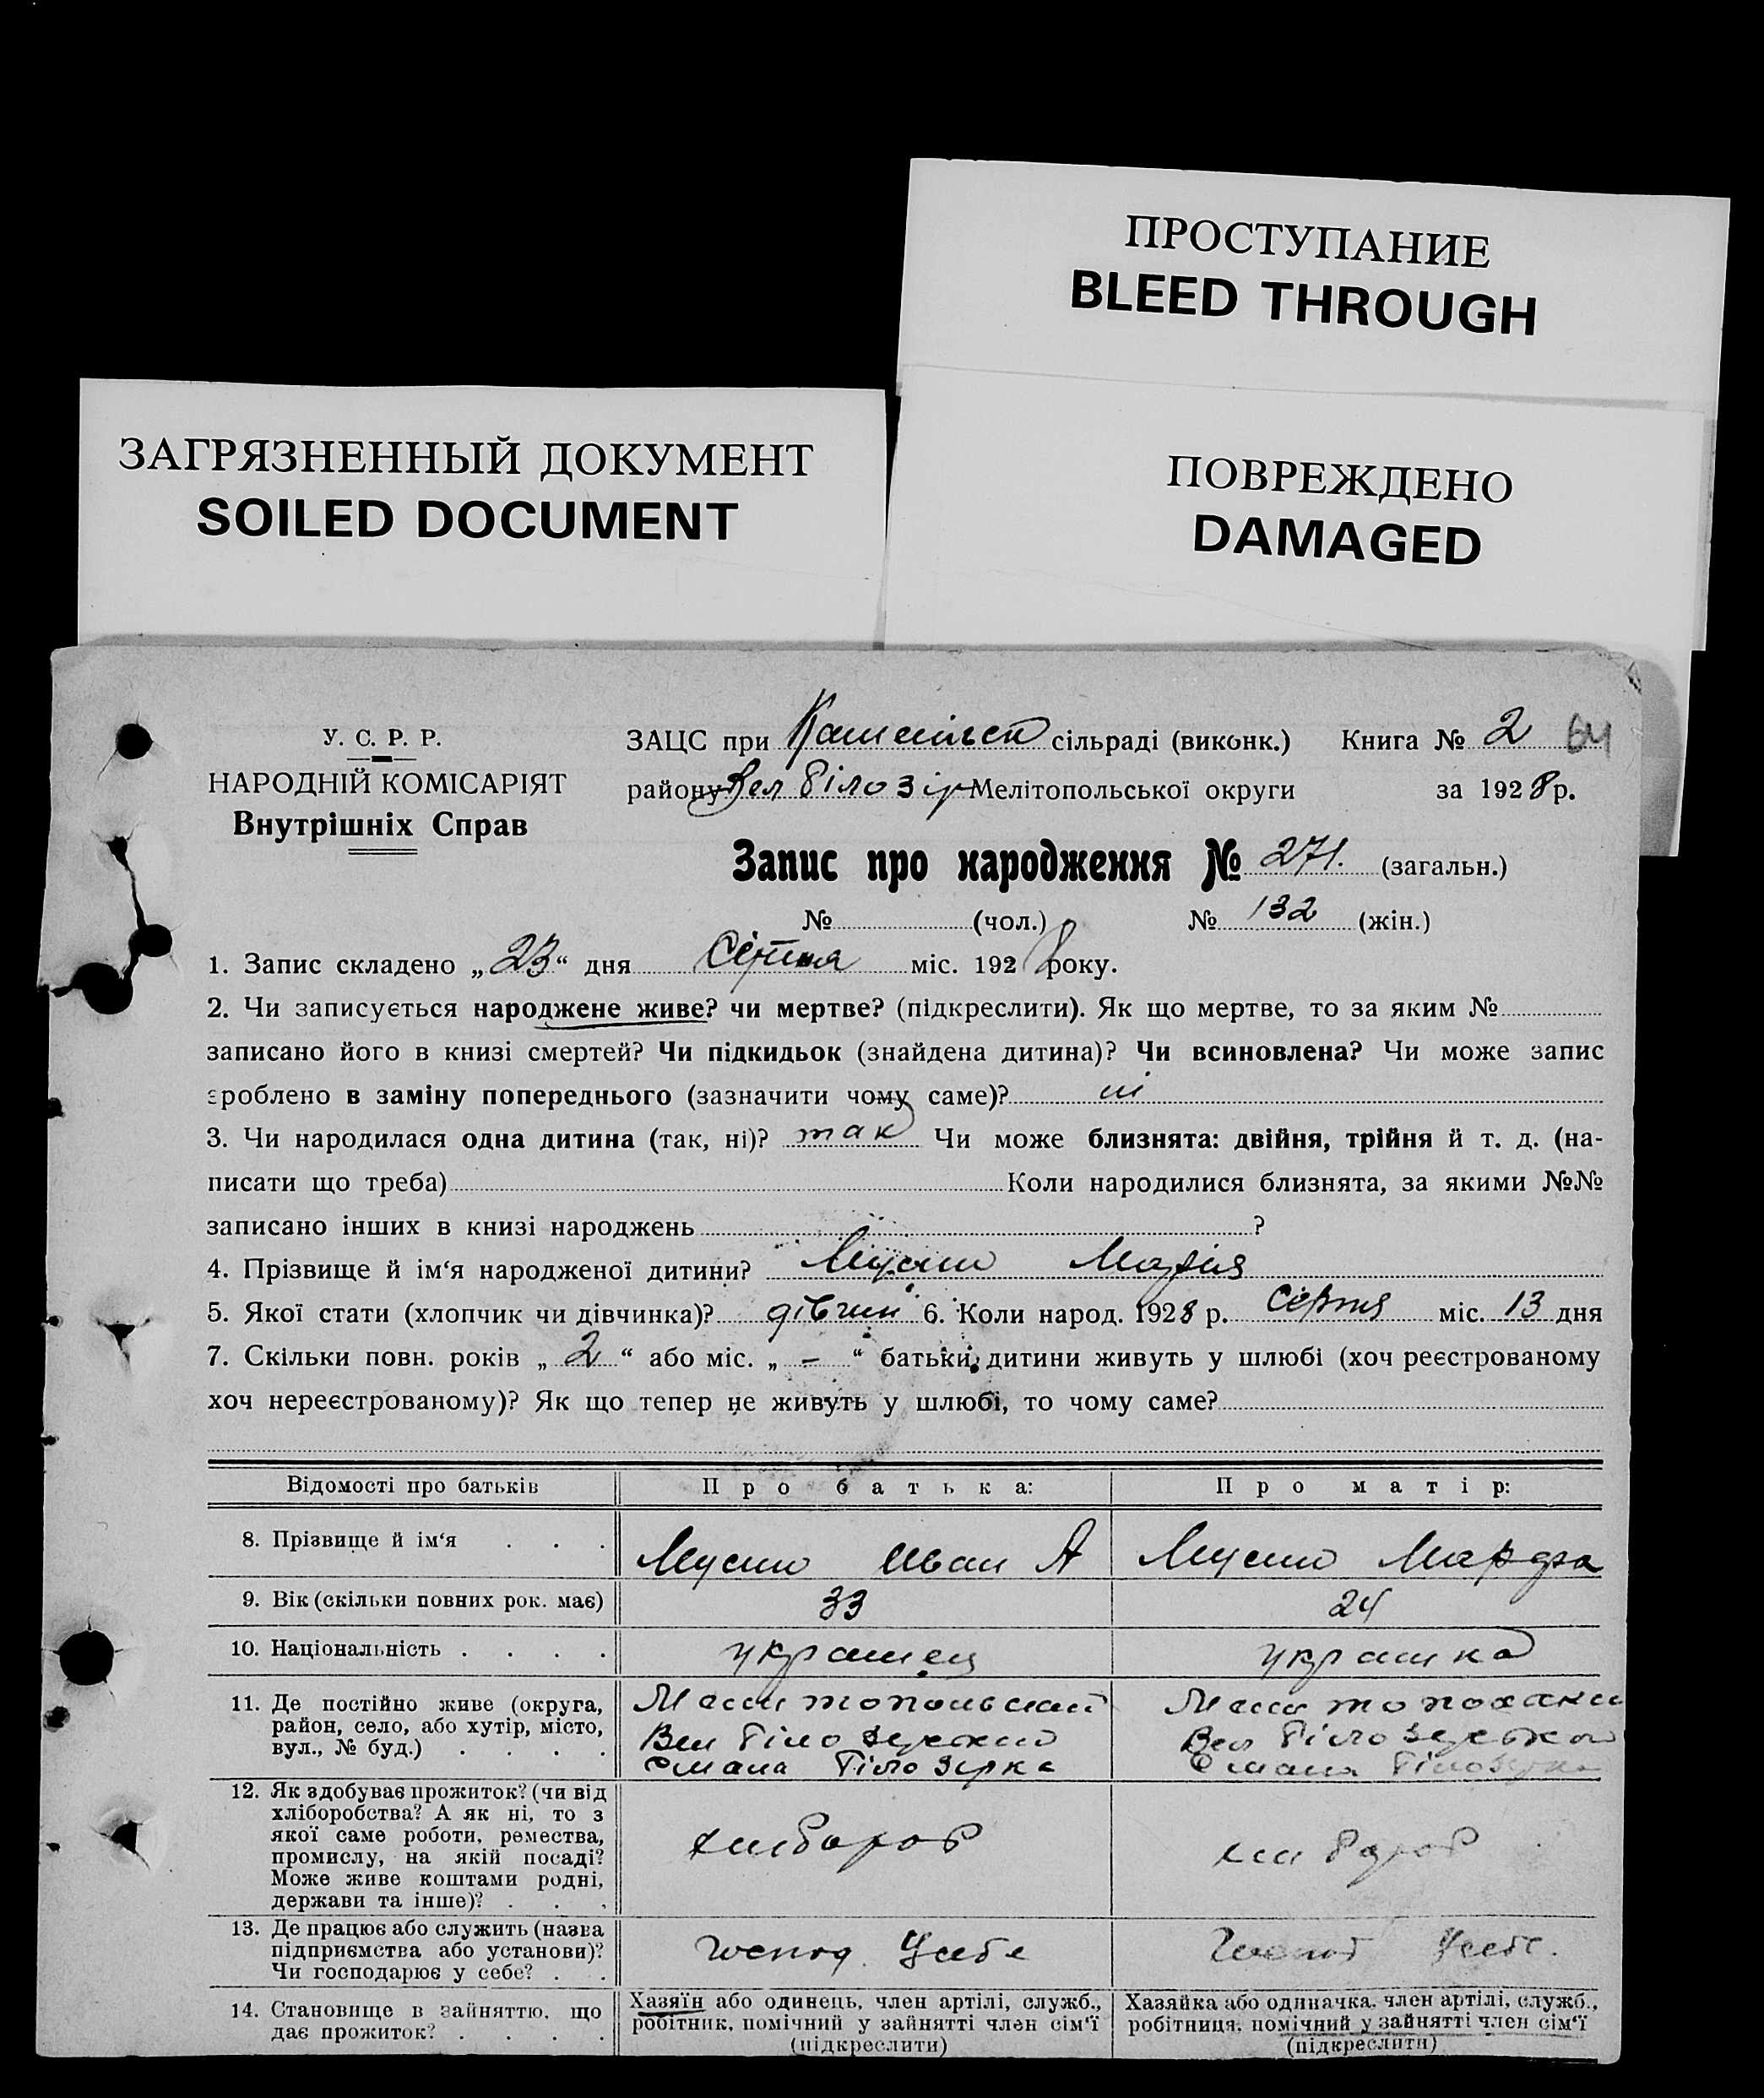 ПРОСТУПАНИЕ
BLEED THROUGH
ЗАГРЯЗНЕННЫЙ ДОКУМЕНТ
SOILED DOCUMENT
ПОВРЕЖДЕНО
DAMAGED
У. С. Р. Р.
НАРОДНІЙ КОМІСАРІЯТ
Внутрішніх Справ
ЗАЦС при сільраді (виконк.) Книга № 2 64
району Вел Білозір Мелітопольської округи за 1928 р.
Запис про народження № 271. (загальн.)
№ (чол.) № 132 (жін.)
1. Запис складено „23“ дня Серпня міс. 1928 року.
2. Чи записується народжене живе? чи мертве? (підкреслити). Як що мертве, то за яким №
записано його в книзі смертей? Чи підкидьок (знайдена дитина)? Чи всиновлена? Чи може запис
зроблено в заміну попереднього (зазначити чому саме)? ні
3. Чи народилася одна дитина (так, ні)? так Чи може близнята: двійня, трійня й т. д. (на-
писати що треба) Коли народилися близнята, за якими №№
записано інших в книзі народжень ?
4. Прізвище й ім'я народженої дитини? Марія
5. Якої стати (хлопчик чи дівчинка)? дівчин 6. Коли народ. 1928 р. Серпня міс. 13 дня
7. Скільки повн. років „2“ або міс. „–“ батьки дитини живуть у шлюбі (хоч реєстрованому
хоч нереєстрованому)? Як що тепер не живуть у шлюбі, то чому саме?
Відомості про батьків Про батька: Про матір:
8. Прізвище й ім'я . . . Иван А
9. Вік (скільки повних рок. має) 33 24
10. Національність . . . . украинец украинка
11. Де постійно живе (округа,
район, село, або хутір, місто,
вул., № буд.) . . . .
Вел Білозерский
Мала Білозирка
12. Як здобуває прожиток? (чи від
хліборобства? А як ні, то з
якої саме роботи, ремества,
промислу, на якій посаді?
Може живе коштами родні,
держави та інше)? . . .
хлибороб хлибороб
13. Де працює або служить (назва
підприємства або установи)?
Чи господарює у себе? . .
господ. Усебе Усебе.
14. Становище в зайняттю, що
дає прожиток? . . . .
Хазяїн або одинець, член артілі, служб.,
робітник, помічний у зайнятті член сім'ї
(підкреслити)
Хазяйка або одиначка, член артілі, служб.,
робітниця, помічний у зайнятті член сім'ї
(підкреслити)